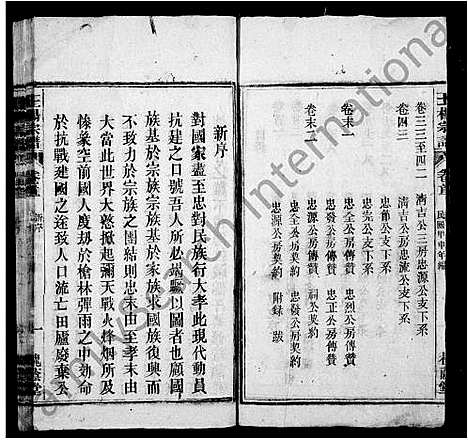 王楊宗譜 卷首 民國甲申年編
卷三三至四二 清吉公三房忠源公支下系
卷四三 清吉公房忠流公支下系
忠節公支下系
忠完公支下系
卷末一 忠源公房傳贊 忠烈公房傳贊
忠流公房傳贊 忠正公房傳贊
忠發公房傳贊 祠公契約
卷末二 忠源公房契約 附錄 跋
忠流公房契約
新序
對國家盡至忠對民族行大孝此現代動員
抗建之口號吾人所必竭驅以圖者也顧國
族基於宗族宗族基於家族求國族復興而
不致力於宗族之團結則忠末由至孝末由
大當此世界大戰掀起彌天戰火烽烟所及
慘象空前國人度劫於槍林彈雨之中効命
於抗戰建國之途致人口流亡田廬廢棄公
王楊宗譜 卷首 新序 一 槐蔭堂
amilySearch International